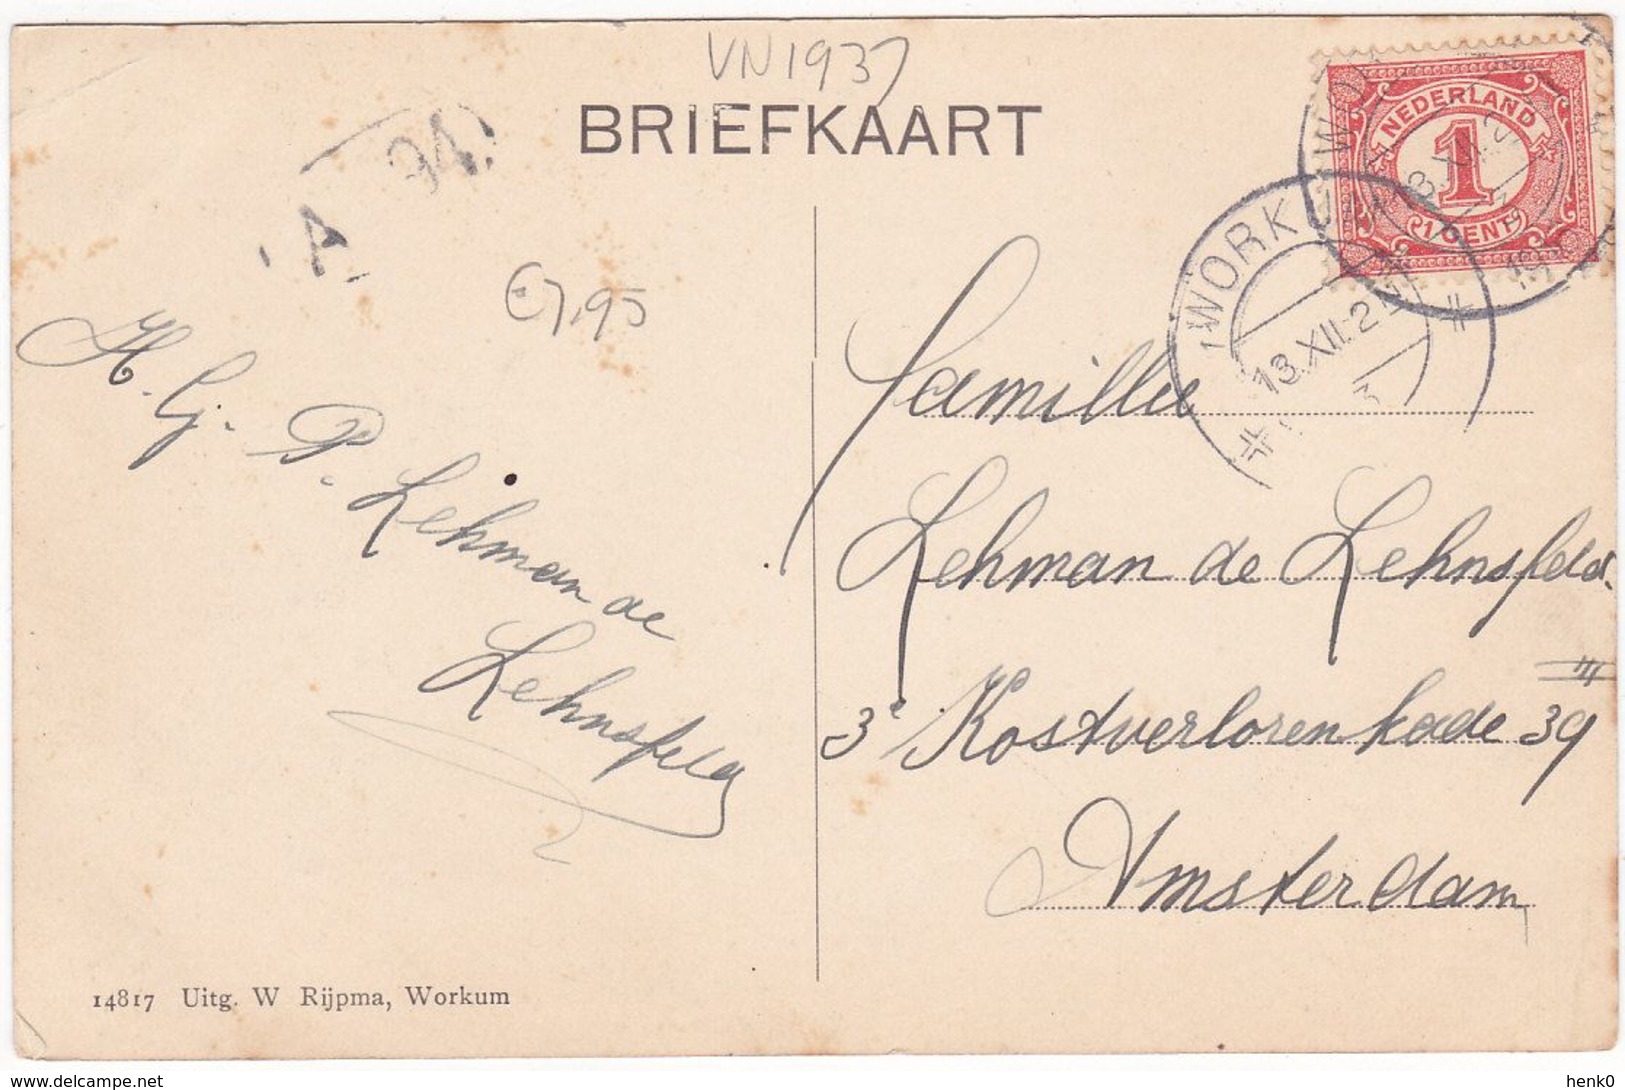 VN1937
BRIEFKAART
A 94
NEDERLAND
1
1 CENT
WORK
13.XII.2
3
€7,95
H. G. P. Lehman de
Lehnsfeld
Familie
Lehman de Lehnsfeld.
3e Kostverlorenkade 39 III
Amsterdam
14817 Uitg. W Rijpma, Workum
delcampe.net
henk0